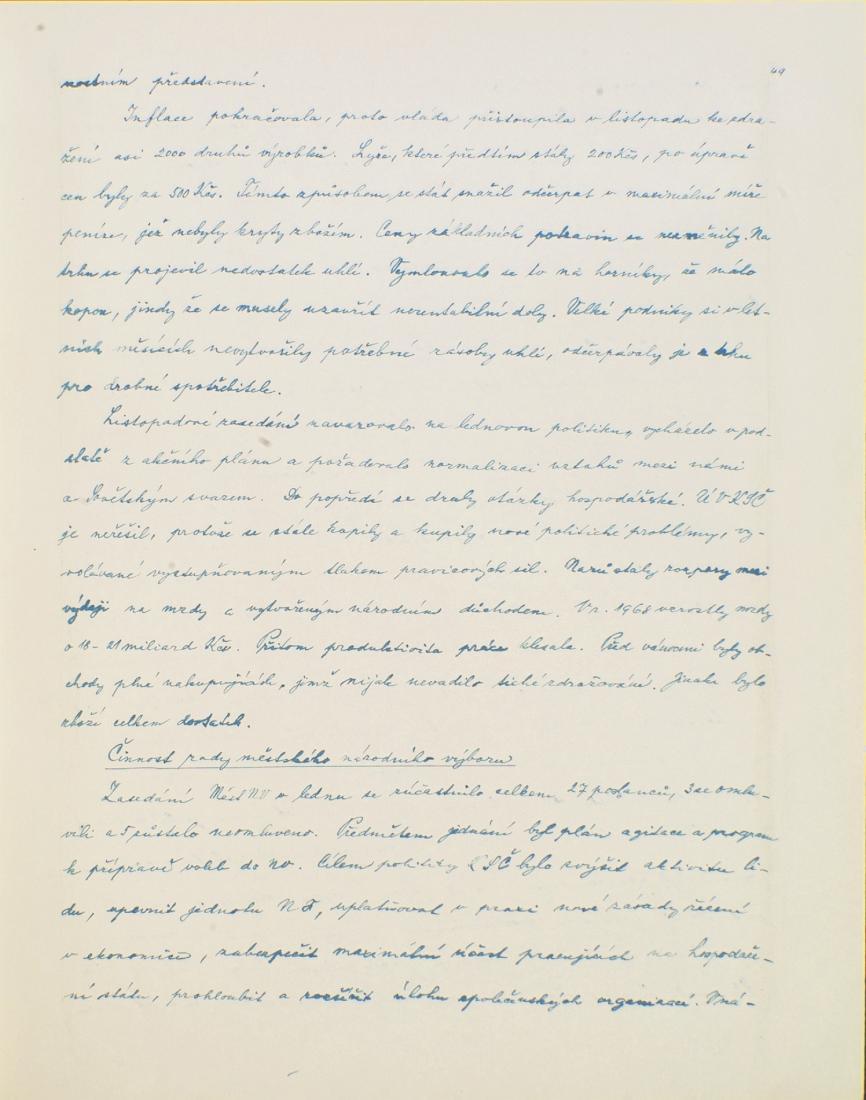 49
nostním představení.
Inflace pokračovala, proto vláda přistoupila v listopadu ke zdra-
žení asi 2000 druhů výrobků. Lyže, které předtím stály 200 Kčs, po úpravě
cen byly za 500 Kčs. Tímto způsobem se stát snažil odčerpat v maximální míře
peníze, jež nebyly kryty zbožím. Ceny základních potravin se nezměnily. Na
trhu se projevil nedostatek uhlí. Vymlouvalo se to na horníky, že málo
kopou, jindy že se musely uzavřít nerentabilní doly. Velké podniky si v let-
ních měsících nevytvořily potřebné zásoby uhlí, odčerpávaly je z trhu
pro drobné spotřebitele.
Listopadové zasedání navazovalo na lednovou politiku, vycházelo v pod-
statě z akčního plánu a požadovalo normalizaci vztahů mezi námi
a Sovětským svazem. Do popředí se draly otázky hospodářské. ÚV KSČ
je neřešil, protože se stále kupily a kupily nové politické problémy, vy-
volávané vystupňovaným tlakem pravicových sil. Narůstaly rozpory mezi
výdaji na mzdy a vytvořeným národním důchodem. V r. 1968 vzrostly mzdy
o 18 - 21 miliard Kčs. Přitom produktivita práce klesala. Před vánocemi byly ob-
chody plné nakupujících, jimž nijak nevadilo tiché zdražování. Jinak bylo
zboží celkem dostatek.
Činnost rady městského národního výboru
Zasedání Měst NV v lednu se zúčastnilo celkem 27 poslanců, 3 se omlu-
vili a 5 zůstalo neomluveno. Předmětem jednání byl plán agitace a program
k přípravě voleb do NV. Cílem politiky KSČ bylo zvýšit aktivitu li-
du, upevnit jednotu NF, uplatňovat v praxi nové zásady řízení
v ekonomice, zabezpečit maximální účast pracujících na hospodaře-
ní státu, prohloubit a rozšířit úlohu společenských organizací. V ná-